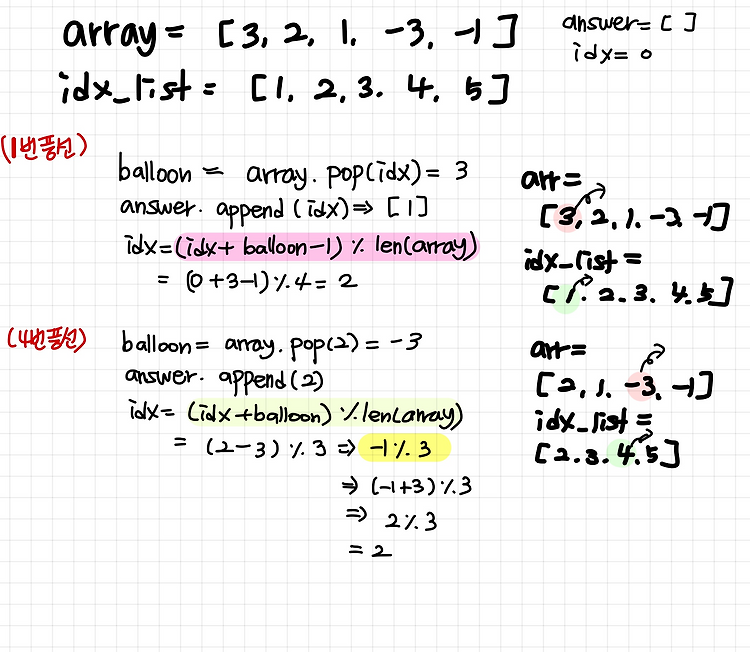 array = [3, 2, 1, -3, -1]
answer = [ ]
idx = 0
idx_list = [1, 2, 3, 4, 5]
(1번풍선)
balloon = array.pop(idx) = 3
answer.append(idx) ⇒ [1]
idx = (idx + balloon-1) % len(array)
= (0+3-1) % 4 = 2
arr =
[3, 2, 1, -3, -1]
idx_list =
[1. 2. 3. 4. 5]
(4번풍선)
balloon = array.pop(2) = -3
answer.append(2)
idx = (idx+balloon) % len(array)
= (2-3) % 3 ⇒ -1 % 3
⇒ (-1+3) % 3
⇒ 2 % 3
= 2
arr =
[2, 1, -3, -1]
idx_list =
[2. 3. 4. 5]